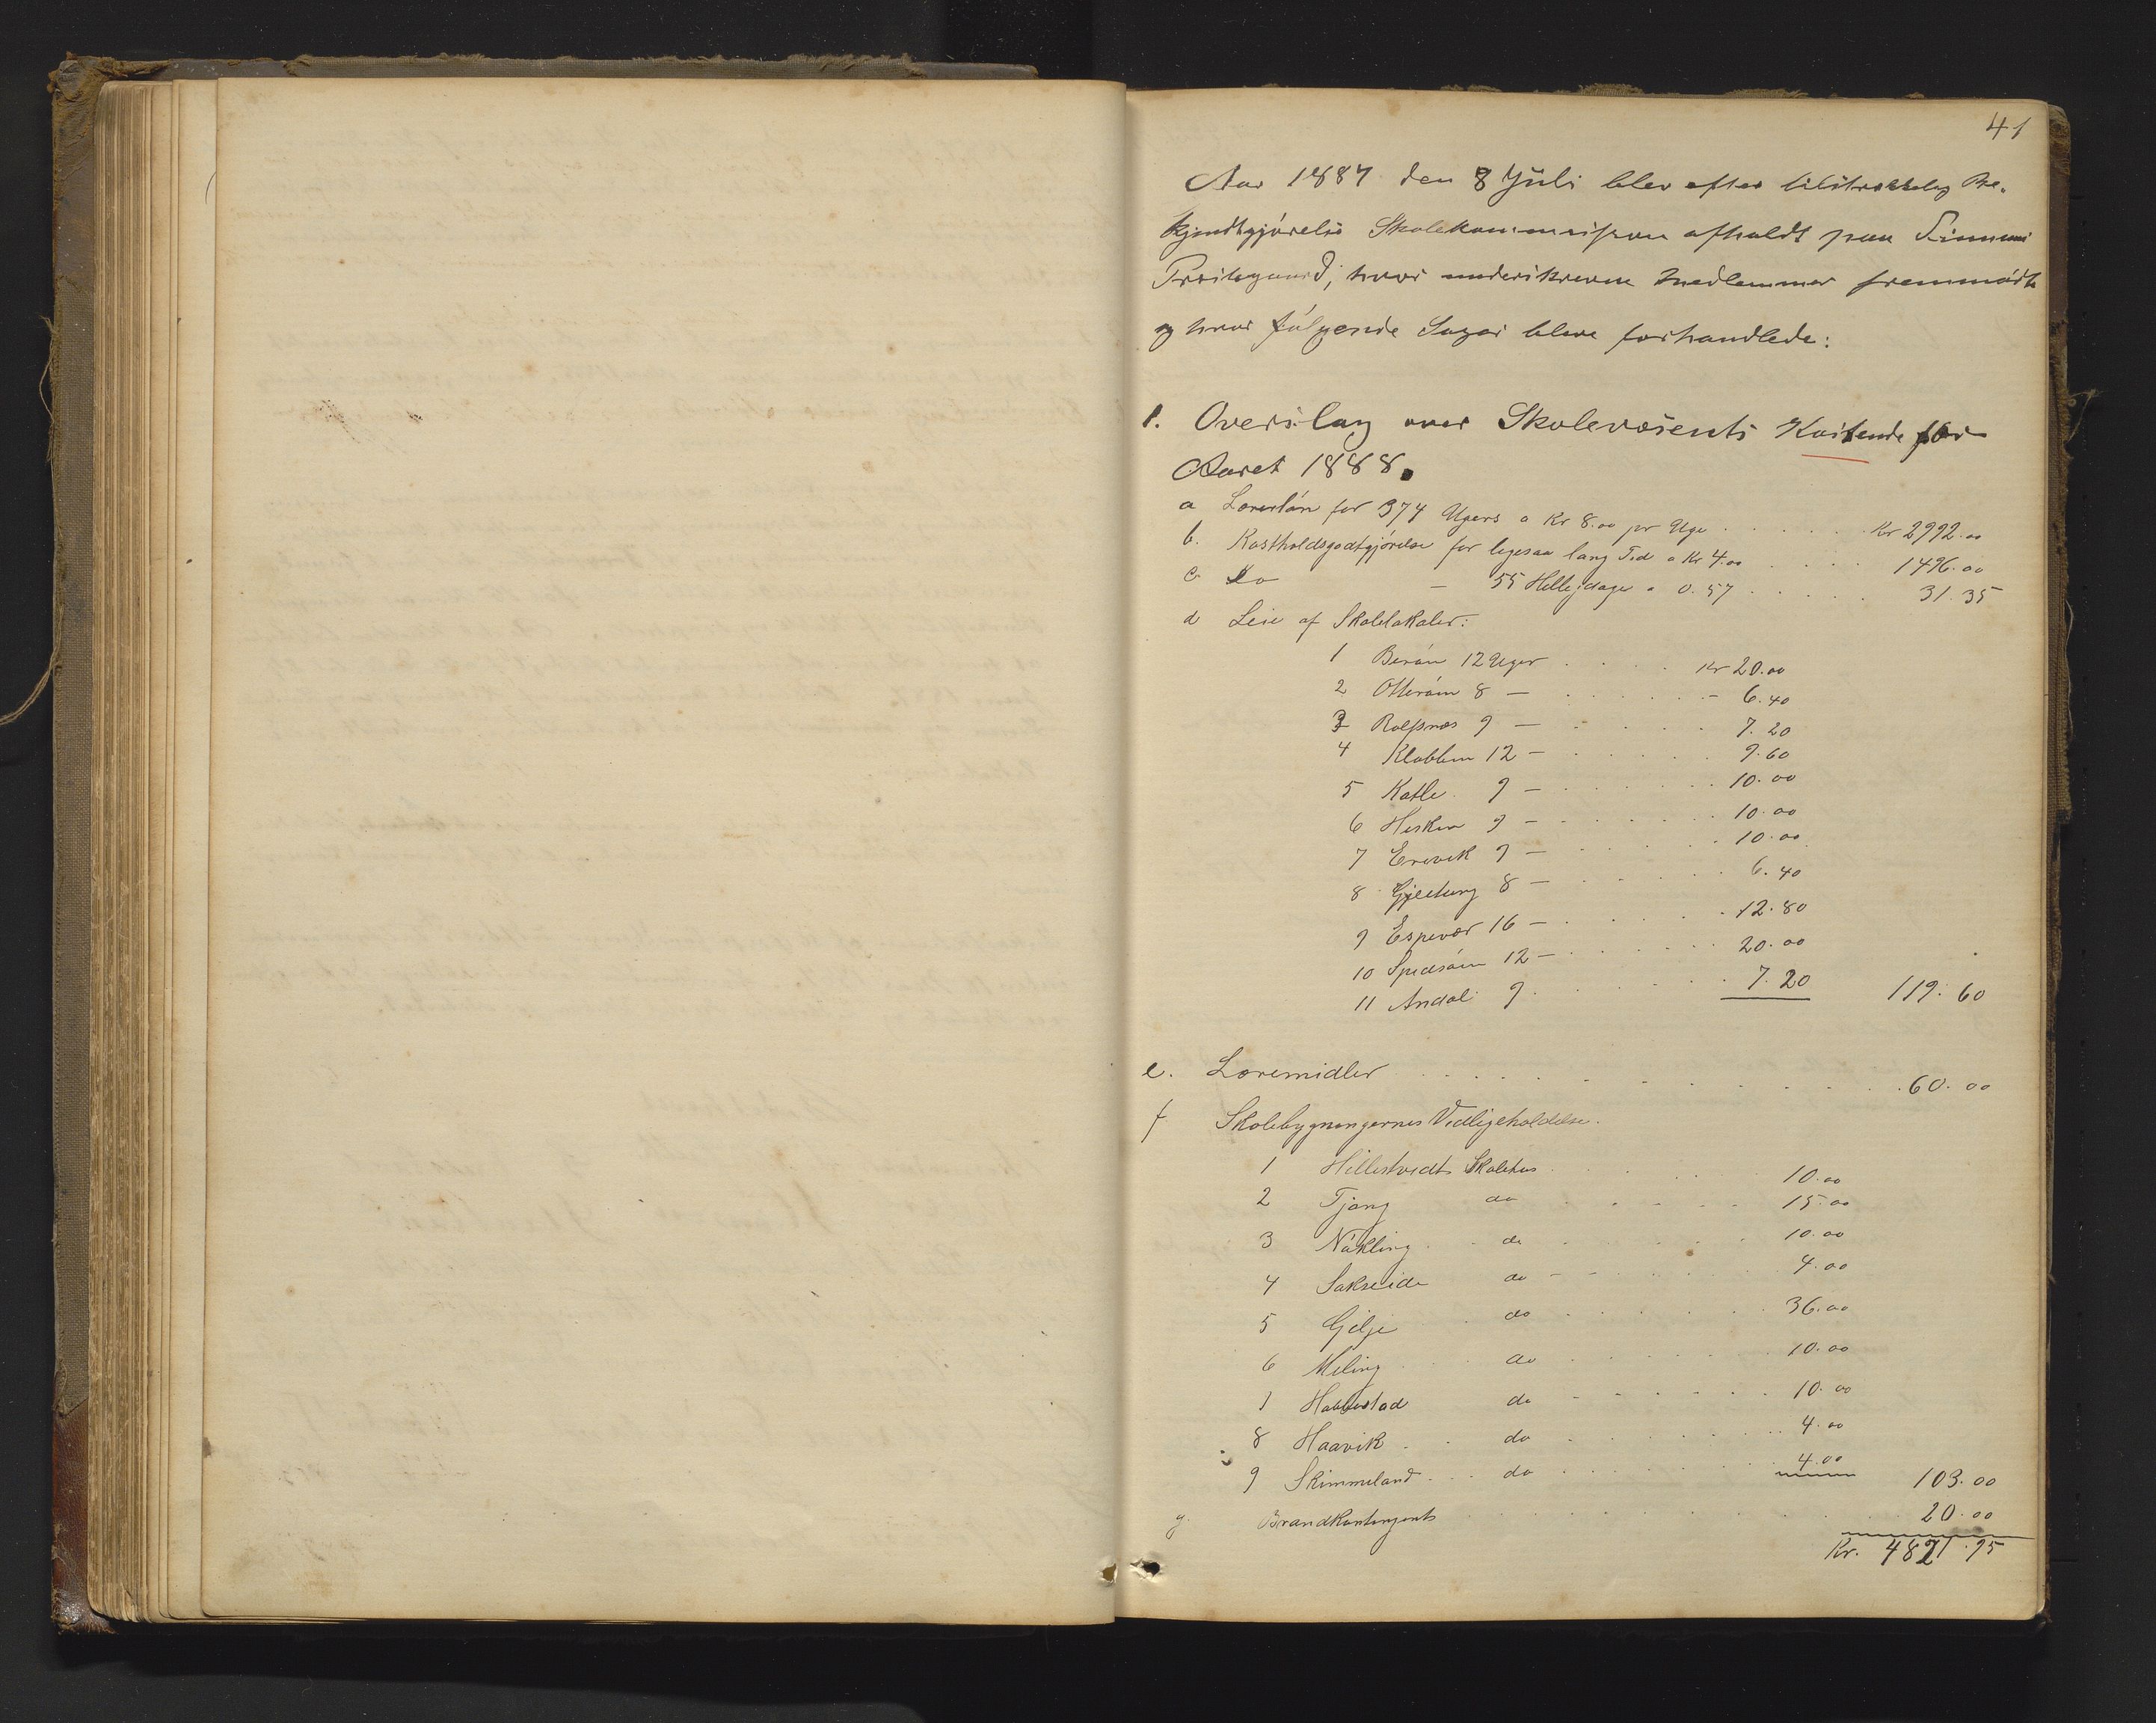 41
Aar 1887 den 8 Juli blev efter tilstrækkelig Be-
kjendtgjørelse Skolekommission afholdt paa Finnaas
Præstegaard, hvor underskrevne Medlemmer fremmødte
og hvor følgende Sager bleve forhandlede:
1. Overslag over Skolevæsenets Kostende for
Aaret 1888.
a Lærerløn for 374 Ugers a Kr 8.00 pr Uge . . . . . Kr 2992.00
b. Kostholdsgodtgjørelse for ligesaa lang Tid a Kr 4.00 . . . . 1496.00
c Do — 55 Helligdage a 0.57 . . . . . 31.35
d Leie af Skolelokaler:
1 Børøen 12 Uger . . . . Kr 20.00
2 Otterøen 8 — . . . . . . — 6.40
3 Rolfsnæs 9 — . . . . . 7.20
4 Klubben 12 — . . . . . 9.60
5 Katle 9 — . . . . . . 10.00
6 Hisken 9 — . . . . . . 10.00
7 Erevik 9 — . . . . . . 10.00
8 Gjeitung 8 — . . . . . 6.40
9 Espevær 16 — . . . . . 12.80
10 Spidsøen 12 — . . . . . 20.00
11 Andal 9 . . . . . . 7.20 119.60
e. Læremidler . . . . . . . . . 60.00
f Skolebygningernes Vedligeholdelse.
1 Hillestvedts Skolehus . . . . 10.00
2 Tjong do . . . . . 15.00
3 Nøkling . . do . . . . . 10.00
4 Sakseide do — . . . . 4.00
5 Gilje . do . . . . . . 36.00
6 Meling . . do . . . . . 10.00
7 do - - - - - 10.00
8 Haavik . . do . . . . . 4.00
9 Skimmeland . . . do . . . . . 4.00 103.00
g. Brandkontingents . . . . . . . . 20.00
Kr. 4821.95